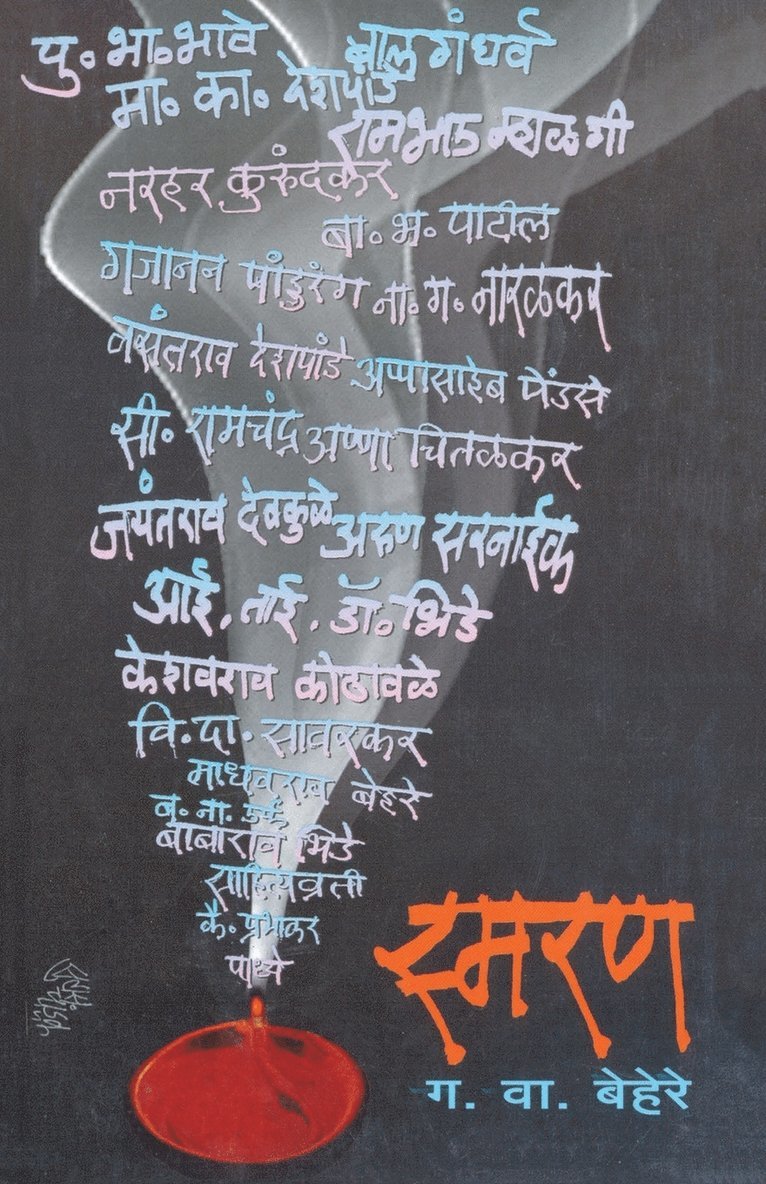 पु. भा. भावे बालगंधर्व
मा. का. देशपांडे
रामभाऊ म्हाळगी
नरहर कुरुंदकर
बा. भ. पाटील
गजानन पांडुरंग ना. ग. नारळकर
वसंतराव देशपांडे अप्पासाहेब पेंडसे
सी. रामचंद्र अण्णा चितळकर
जयंतराव देवकुळे अरुण सरनाईक
आई. ताई. डॉ. भिडे
केशवराव कोठावळे
वि. दा. सावरकर
माधवराव बेहेरे
ब. ना.
बाबाराव भिडे
साहित्यव्रती
कै. प्रभाकर
पाध्ये
स्मरण
ग. वा. बेहेरे